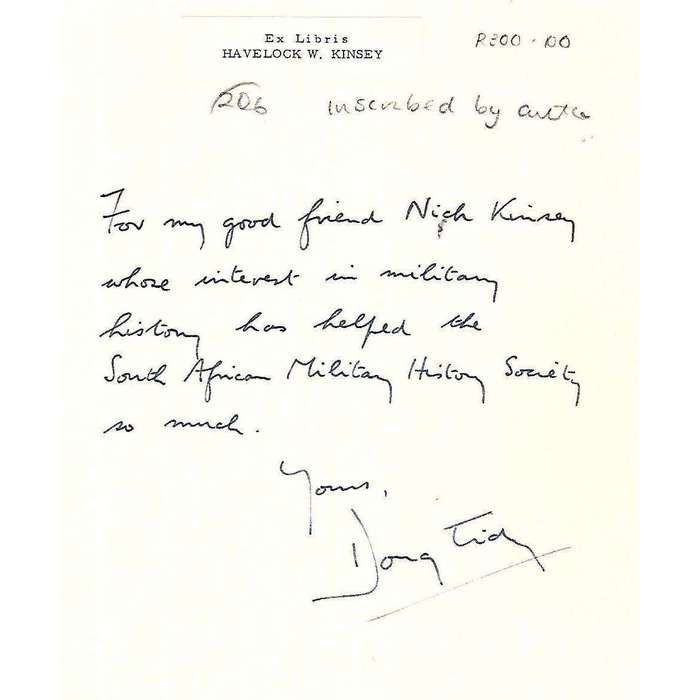 Ex Libris
HAVELOCK W. KINSEY
R300-00
206 inscribed by
For my good friend Nick Kinsey
whose interest in military
history has helped the
South African Military History Society
so much.
Yours,
Doug Tidy